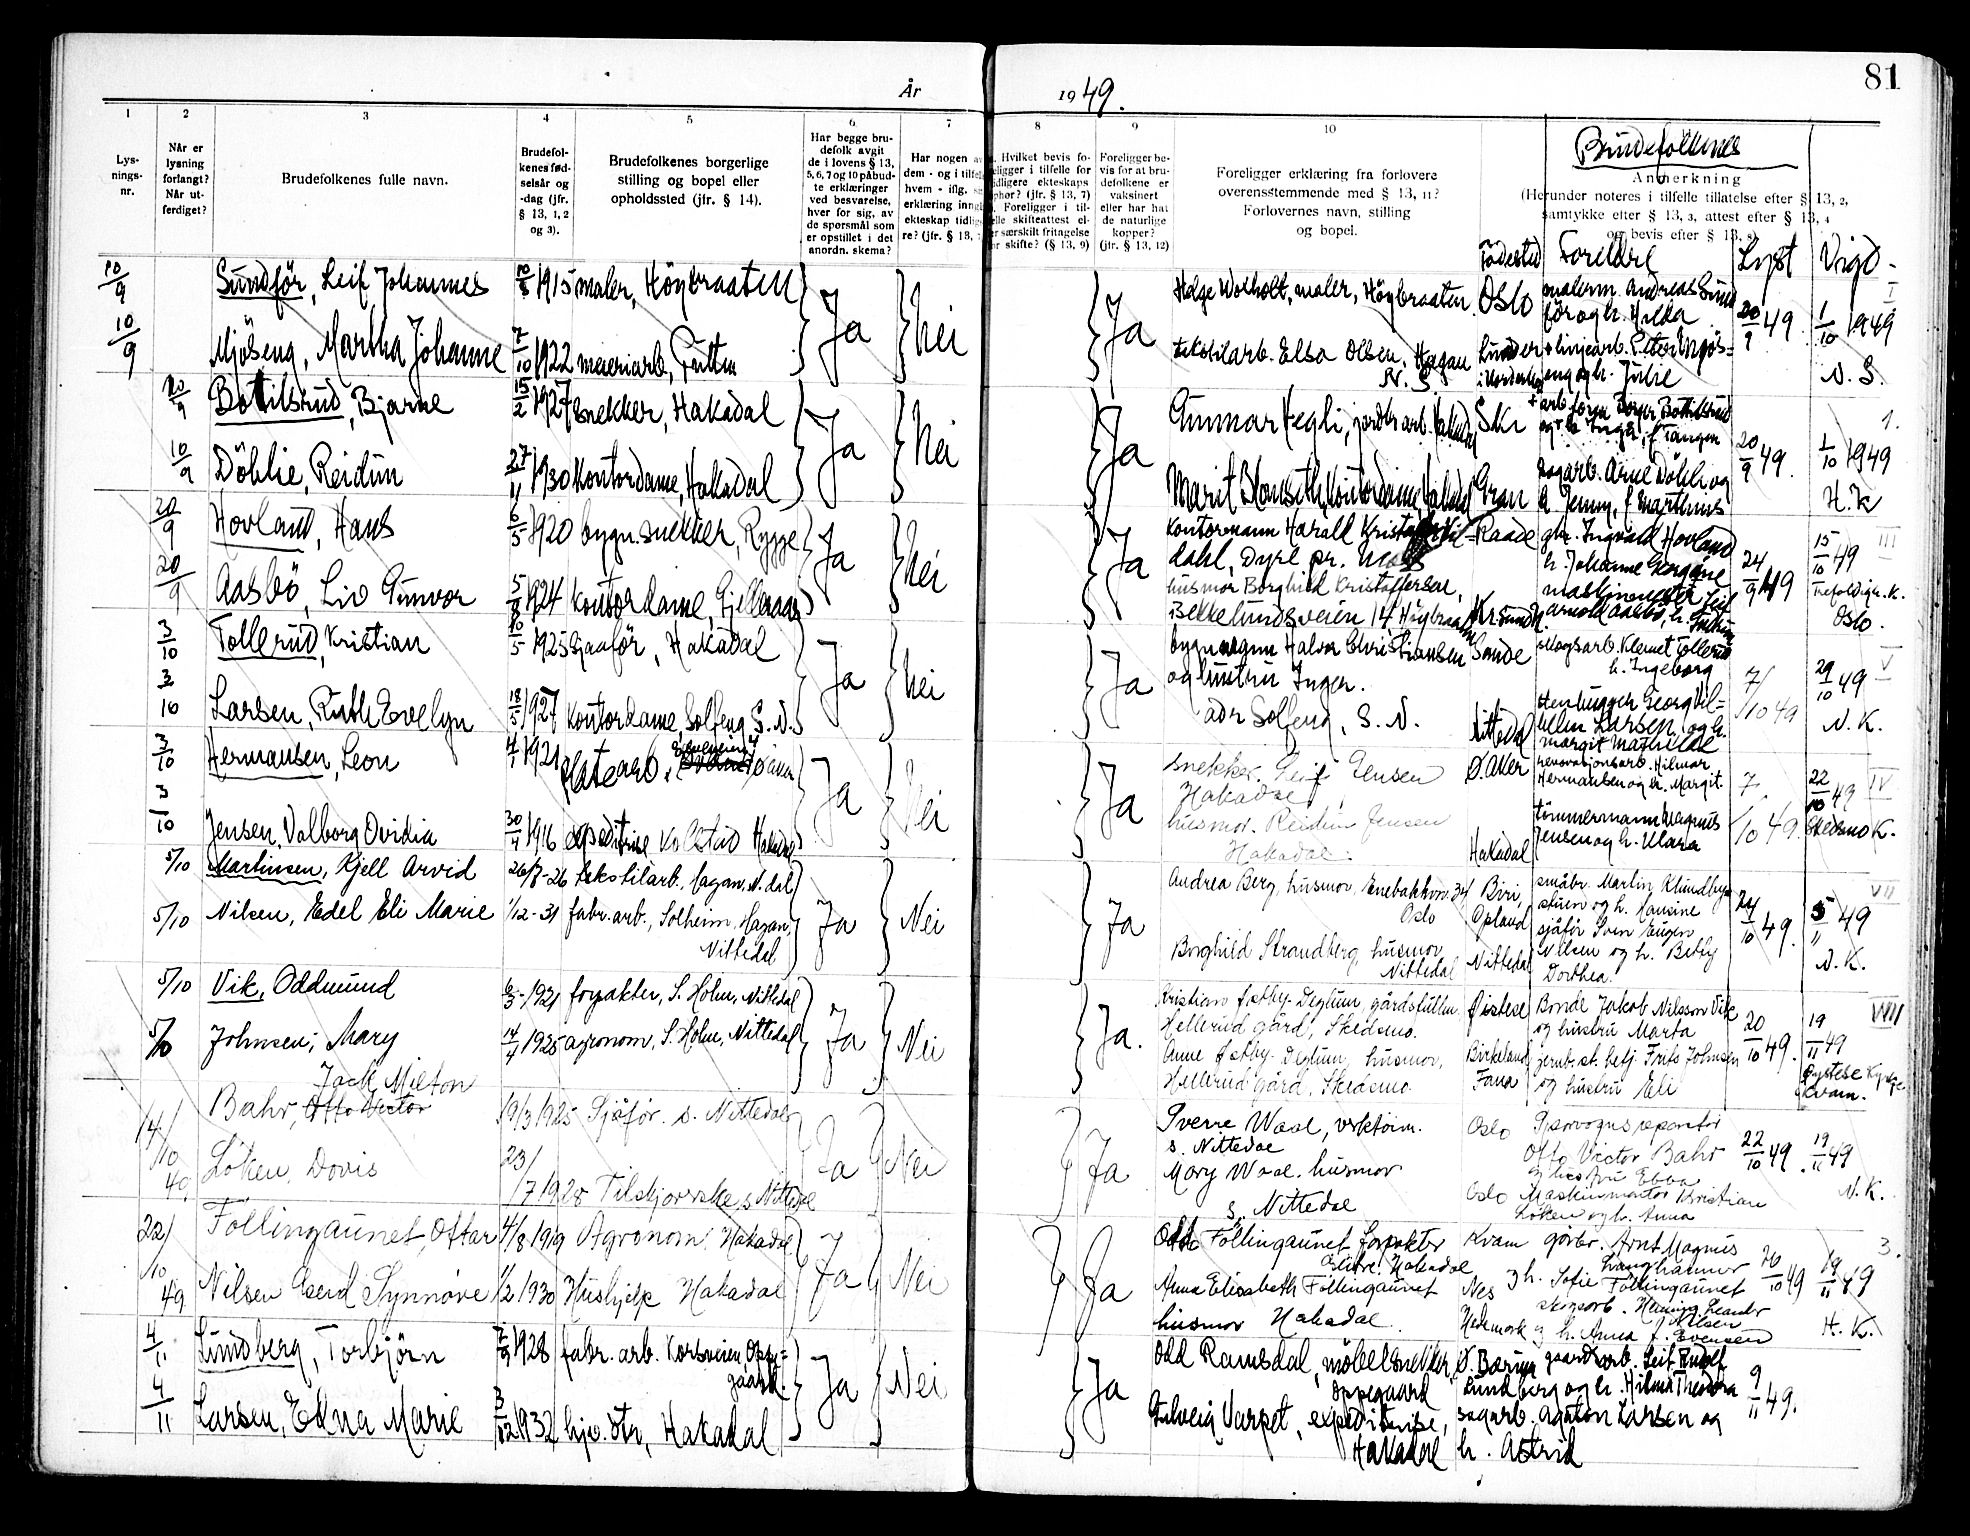 81
År
1949.
1
2
3
4
5
6
7
8
9
10
Lys-
nings-
nr.
Når er
lysning
forlangt?
Når ut-
ferdiget?
Brudefolkenes fulle navn.
Brudefol-
kenes fød-
selsår og
-dag (jfr.
§ 13, 1, 2
og 3).
Brudefolkenes borgerlige
stilling og bopel eller
opholdssted (jfr. § 14).
Har begge bru-
defolk avgit
de i lovens § 13,
5, 6, 7 og 10 påbud-
te erklæringer
ved besvarelse,
hver for sig, av
de spørsmål som
er opstillet i det
anordn. skema?
Har nogen a
dem - og i tilfel
hvem - iflg.
erklæring inng
ekteskap tidlig
re? (jfr. § 13,
Hvilket bevis fo-
religger i tilfelle for
tidligere ekteskaps
ophør? (jfr. § 13, 7)
Foreligger i til-
felle skifteattest el-
er særskilt fritagelse
for skifte? (§ 13, 9)
Foreligger be-
vis for at bru-
defolkene er
vaksinert
eller har hat
de naturlige
kopper?
(jfr. § 13, 12)
Foreligger erklæring fra forlovere
overensstemmende med § 13, 11?
Forlovernes navn, stilling
og bopel.
Brudefolkenes
Anmerkning
(Herunder noteres i tilfelle tillatelse efter § 13, 2,
samtykke efter § 13, 3, attest efter § 13, 4
og bevis efter § 13, 9)
Födested Foreldre Lyst Vigd
10/9 Sundför, Leif Johannes 1915 maler, Höybraaten Ja Nei Ja Helge Wolholt, maler, Höybraaten Oslo malerm. Andreas Sund
för og h. Hilda 20/9 49. 1/10 1949 I
10/9 Mjöseng, Martha Johanne 7/10 1922 meieriarb,
tekstilarb. Elsa Olsen, Hagan
N. S. eng og h. Julie N. S.
Bottilsrud, Bjarne 15/2 1927 snekker, Hakadal Ja Nei Ja Gunnar Hegli, jordbr arb. Hakadal Ski
og h. Inga, f Tangen 20/9 49. 1/10 1949 1.
10/9 Döhlie, Reidun 27/11 1930 Kontordame, Hakadal Marit Kontordame, Hakadal Gran sagarb. Arne Döhli og
h Jenny, f Marthins H. K
20/9 Hovland, Hans 6/5 1920 bygn. snekker, Rygge Ja Nei Ja Kontormann Harald Raade gbr. Ingvald Hovland
dahl, Dyre pr. Moss h. Johanne 24/9 49 15/10 49 III
20/9 Aasbö, Liv Gunvor 5/8 1924 Kontordame, husmor Borghild Kristoffersen, Trefoldigh. K.
Bekkelundsveien 14 Höybraaten Kr.sund Arnold Aasbö, h. Oslo.
3/10 Tollerud, Kristian 10/5 1925 Sjaaför, Hakadal Ja Nei Ja Halvor Christiansen Sande skogsarb. Klemet Tollerud
h. Ingeborg
og hustru Inger. 7/10 49 29/10 49 V
3/10 Larsen, Ruth Evelyn 18/5 1927 Kontordame, Solfeng S. N. adr Solfeng, S. N. Nittedal Stenhugger Georg Vil-
helm Larsen, og h.
Margit Mathilde N. K.
3/10 Hermansen, Leon 4/1 1921 Platearb. Ja Nei Ja snekker Leif Jensen Ö. Aker renovasjonsarb. Hilmar
Hermansen og h. Margit.
Hakadal 7/10 49. 22/10 49 IV
3/10 Jensen, Valborg Ovidia 30/4 1916 expeditrise Kolstad Hakadal husmor. Reidun Jensen
Hakadal. Hakadal tömmermann Magnus
Jensen og h. Klara Skedsmo K.
5/10 Martinsen, Kjell Arvid 26/7-26 tekstilarb., Hagan, N.dal Ja Nei Ja Andrea Berg, husmor, Enebakkvn. 34
Oslo Biri,
Opland småbr. Martin Klundby
stuen og h. Hansine 24/10 49. 5/11 49 VII
5/10 Nilsen, Edel Eli Marie 1/12-31 fabr. arb., Solheim, Hagan,
Nittedal Borghild Strandberg, husmor
Nittedal Nittedal sjåfør Sven Eugen
Nilsen og h. Betty
Dorthea. N. K.
5/10 Vik, Oddmund 6/3-1921 forpakter, S. Holm, Nittedal Ja Nei Ja. Kristian Østby-Deglum, gårdsfullm.
Hellerud gård, Skedsmo. Øistese Bonde Jakob Nilsson Vik
og hustru Marta 20/10 49. 19/11 49 VIII
5/10 Johnsen, Mary 14/4 1925 agronom, S. Holm, Nittedal Anne Østby-Deglum, husmor,
Hellerud gård, Skedsmo. Birkeland
Fana jernb. st. betj. Frits Johnsen
og hustru Eli Øystese Kyrkje
Kvam.
Jack Milton
14/10 49 Bahr, Otto Victor 19/3 1925 Sjåför. S. Nittedal Ja Nei Ja Sverre Waal, verktöim.
s. Nittedal Oslo Sporvognsreparatör
Otto Victor Bahr
og hustru Ebba 22/10 49. 19/11 49
Löken, Dovis 23/7 1928 Tilskjærerske, s. Nittedal Mary Waal. husmor
s. Nittedal Oslo Maskinmontör Kristian
Löken og h. Anna N. K.
22/10 49 Föllingaunet, Ottar 4/8 1919 Agronom, Hakadal Ja Nei Ja Odd Föllingaunet forpakter
Hakadal Kvam gårbr. Arnt Magnus
Langhammer
og h. Sofie Föllingaunet 20/10 49 19/11 49 3.
Nilsen Gerd Synnöve 1/2 1930 Hushjelp Hakadal Anna Elisabeth Föllingaunet
husmor Hakadal. Nes
Hedemark skogsarb. Henning Leander
Nilsen
og h. Anna f. Evensen H. K.
4/11 Lundberg, Torbjörn 7/9 1928 fabr. arb. Korsveien, Oppe-
gaard. Ja Nei Ja Odd Ramsdal, möbelsnekker,
Oppegaard Ö. Bærum gaardsarb. Leif Rudolf
Lundberg og h. Hilma Theodora 9/11 49.
4/11 Larsen, Edna Marie 3/12 1932 hjv. dtr, Hakadal Solveig Varpet, expeditrise,
Hakadal sagarb. Agaton Larsen og
h. Astrid